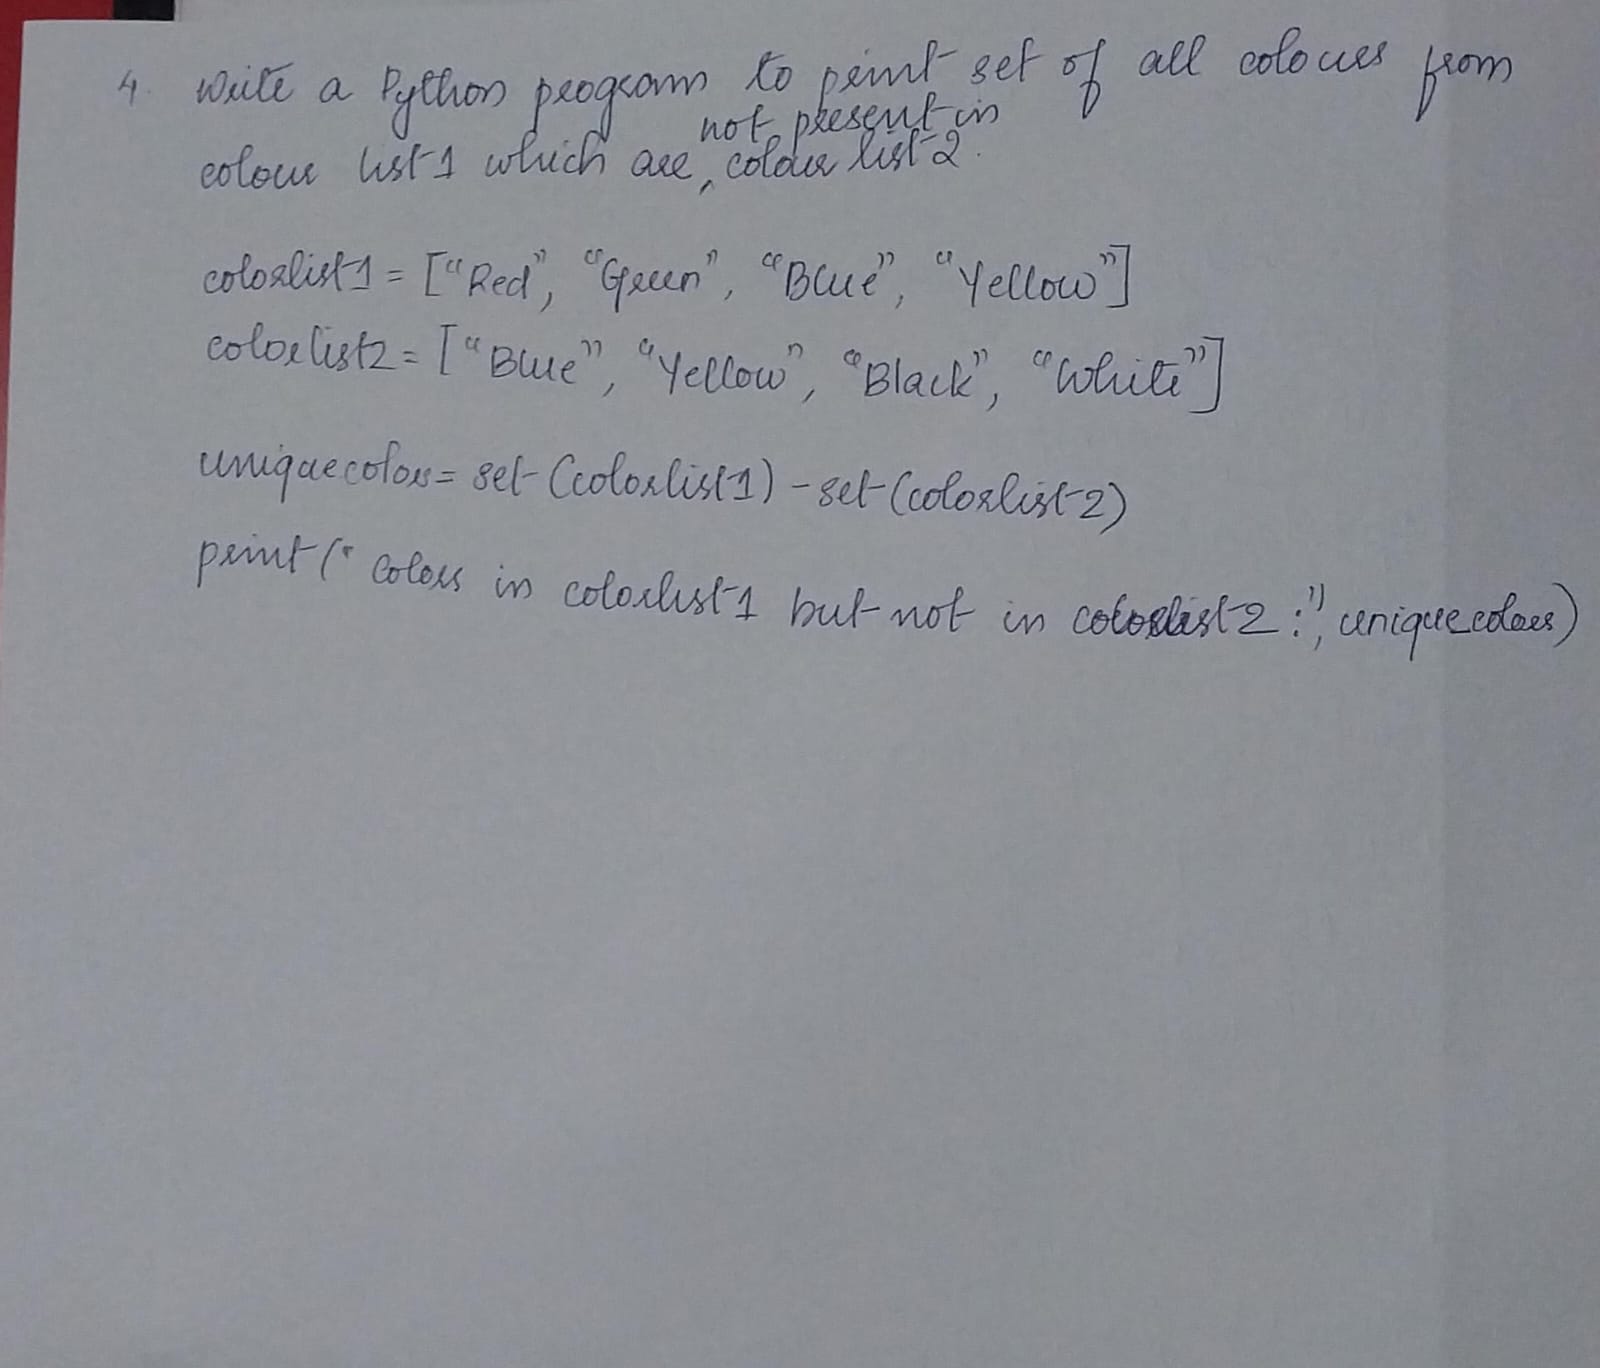 4. Write a Python program to print set of all colours from
not present in
colour list1 which are ‸ colour list2.
colorlist1 = ["Red", "Green", "Blue", "Yellow"]
colorlist2 = ["Blue", "Yellow", "Black", "White"]
uniquecolors = set (colorlist1) - set (colorlist2)
print (" Colors in colorlist1 but not in colorlist2 :", uniquecolors)